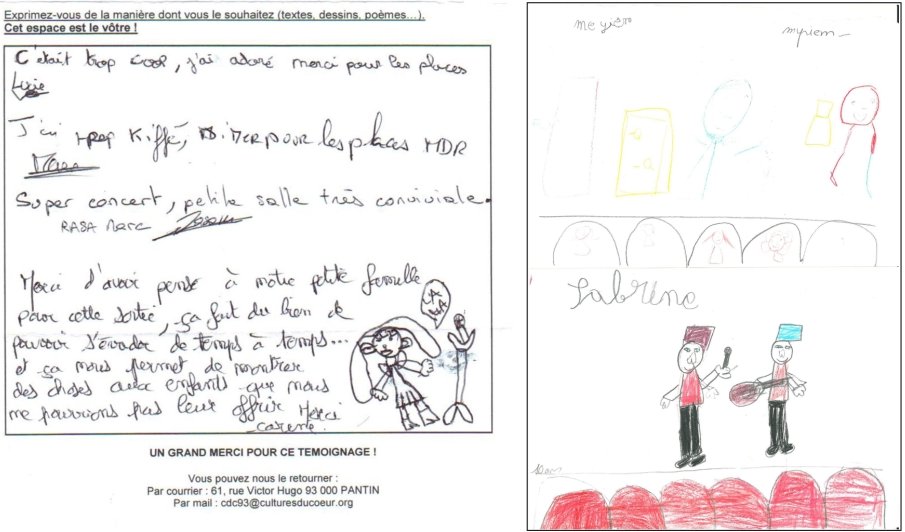 Exprimez-vous de la manière dont vous le souhaitez (textes, dessins, poèmes…).
Cet espace est le vôtre !
C'était trop cool, j'ai adoré merci pour les places
J'ai trop Kiffé, pour les places MDR
Super concert, petite salle très conviviale.
RASA
Merci d'avoir pensé à notre petite famille
pour cette sortie, ça fait du bien de
pouvoir s'évader de temps à temps...
et ça nous permet de montrer
des choses aux enfants que nous
ne pourrions pas leur offrir Merci
LA
UN GRAND MERCI POUR CE TEMOIGNAGE !
Vous pouvez nous le retourner :
Par courrier : 61, rue Victor Hugo 93 000 PANTIN
Par mail : cdc93@culturesducoeur.org
myriem
Sabrine